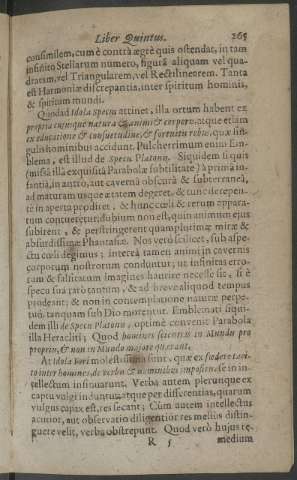 Liber Quintus. 265
consimilem, cum è contrà ægrè quis ostendat, in tam
infinito Stellarum numero, figurã aliquam vel qua-
dratam, vel Triangularem, vel Rectilinearem. Tanta
est Harmoniæ discrepantia, inter spiritum hominis,
& spiritum mundi.
Quoad Idola specus attinet, illa ortum habent ex
propria cujusque natura & animi & corporis; atque etiam
ex educatione & consuetudine, & fortuitis rebus, quæ sin-
gulis hominibus accidunt. Pulcherrimum enim Em-
blema, est illud de specu Platonis. Siquidem si quis
(missâ illâ exquisitâ Parabolæ subtilitate) à primâ in-
fantiâ, in antro, aut cavernâ obscurâ & subterraneâ,
ad maturam usque ætatem degeret, & tunc derepen-
tè in aperta prodiret, & hunc cœli & rerum appara-
tum contueretur; dubium non est, quin animum ejus
subirent, & perstringerent quamplurimæ miræ &
absurdissimæ Phantasiæ. Nos verò scilicet, sub aspe-
ctu cœli degimus; intereà tamen animi in cavernis
corporum nostrorum conduntur; ut infinitas erro-
rum & falsitatum Imagines haurire necesse sit, si è
specu sua rarò tantum, & ad breve aliquod tempus
prodeant; & non in contemplatione naturæ perpe-
tuò, tanquam sub Dio morentur. Emblemati siqui-
dem illi de Specu Platonis, optimè convenit Parabola
illa Heracliti; Quod homines scientias in Mundis pro
propriis, & non in Mundo majore quærant.
At Idola Fori molestissima sunt, quæ ex fœdere taci-
to inter homines, de verbis & nominibus impositis, se in in-
tellectum insinuarunt. Verba autem plerunque ex
captu vulgi induntur, atque per differentias, quarum
vulgus capax est, res secant; Cùm autem intellectus
acutior, aut observatio diligentior res meliùs distin-
guere velit, verba obstrepunt. Quod verò hujus re-
R 5 medium